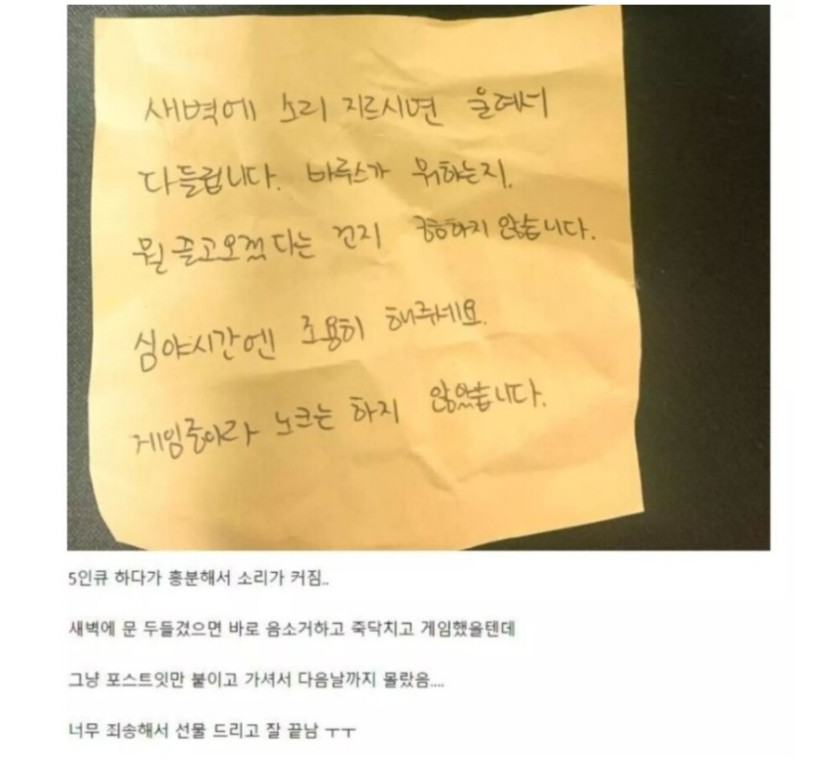 새벽에 소리 지르시면 옆에서
다들립니다. 바루스가 뭐하는지.
뭘 끌고오겠다는 건지 궁금하지 않습니다.
심야시간엔 조용히 해주세요.
게임중이라 노크는 하지 않았습니다.
5인큐 하다가 흥분해서 소리가 커짐..
새벽에 문 두들겼으면 바로 음소거하고 죽닥치고 게임했을텐데
그냥 포스트잇만 붙이고 가셔서 다음날까지 몰랐음....
너무 죄송해서 선물 드리고 잘 끝남 ㅜㅜ